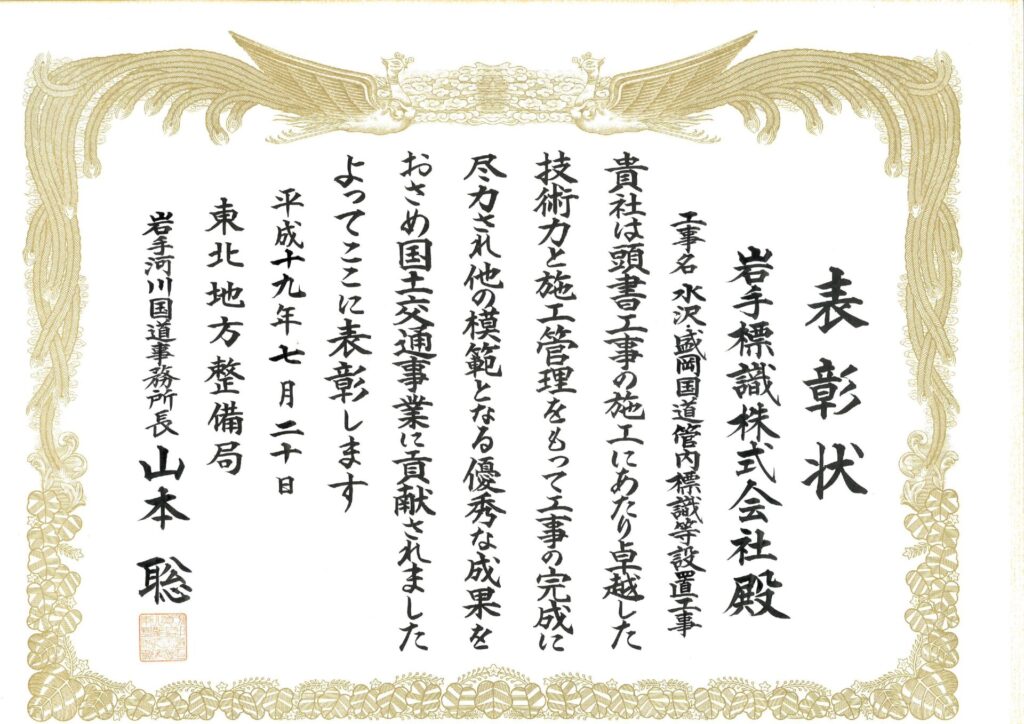 表彰状
岩手標識株式会社殿
工事名 水沢・盛岡国道管内標識等設置工事
貴社は頭書工事の施工にあたり卓越した
技術力と施工管理をもって工事の完成に
尽力され他の模範となる優秀な成果を
おさめ国土交通事業に貢献されました
よってここに表彰します
平成十九年七月二十日
東北地方整備局
岩手河川国道事務所長 山本 聡